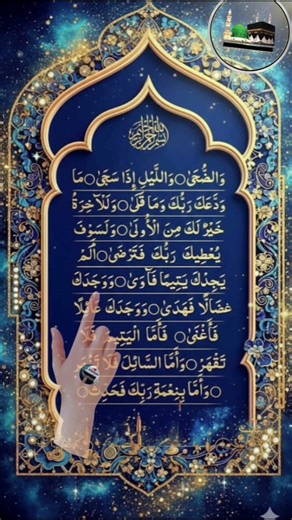 بسم الله الرحمن الرحيم
وَالضُّحَىٰ ○ وَاللَّيْلِ إِذَا سَجَىٰ ○ مَا
وَدَّعَكَ رَبُّكَ وَمَا قَلَىٰ ○ وَلَلْآخِرَةُ
خَيْرٌ لَكَ مِنَ الْأُولَىٰ ○ وَلَسَوْفَ
يُعْطِيكَ رَبُّكَ فَتَرْضَىٰ ○ أَلَمْ
يَجِدْكَ يَتِيمًا فَآوَىٰ ○ وَوَجَدَكَ
ضَالًّا فَهَدَىٰ ○ وَوَجَدَكَ عَائِلًا
فَأَغْنَىٰ ○ فَأَمَّا الْيَتِيمَ فَلَا
تَقْهَرْ ○ وَأَمَّا السَّائِلَ فَلَا
○ وَأَمَّا بِنِعْمَةِ رَبِّكَ فَحَدِّثْ ○